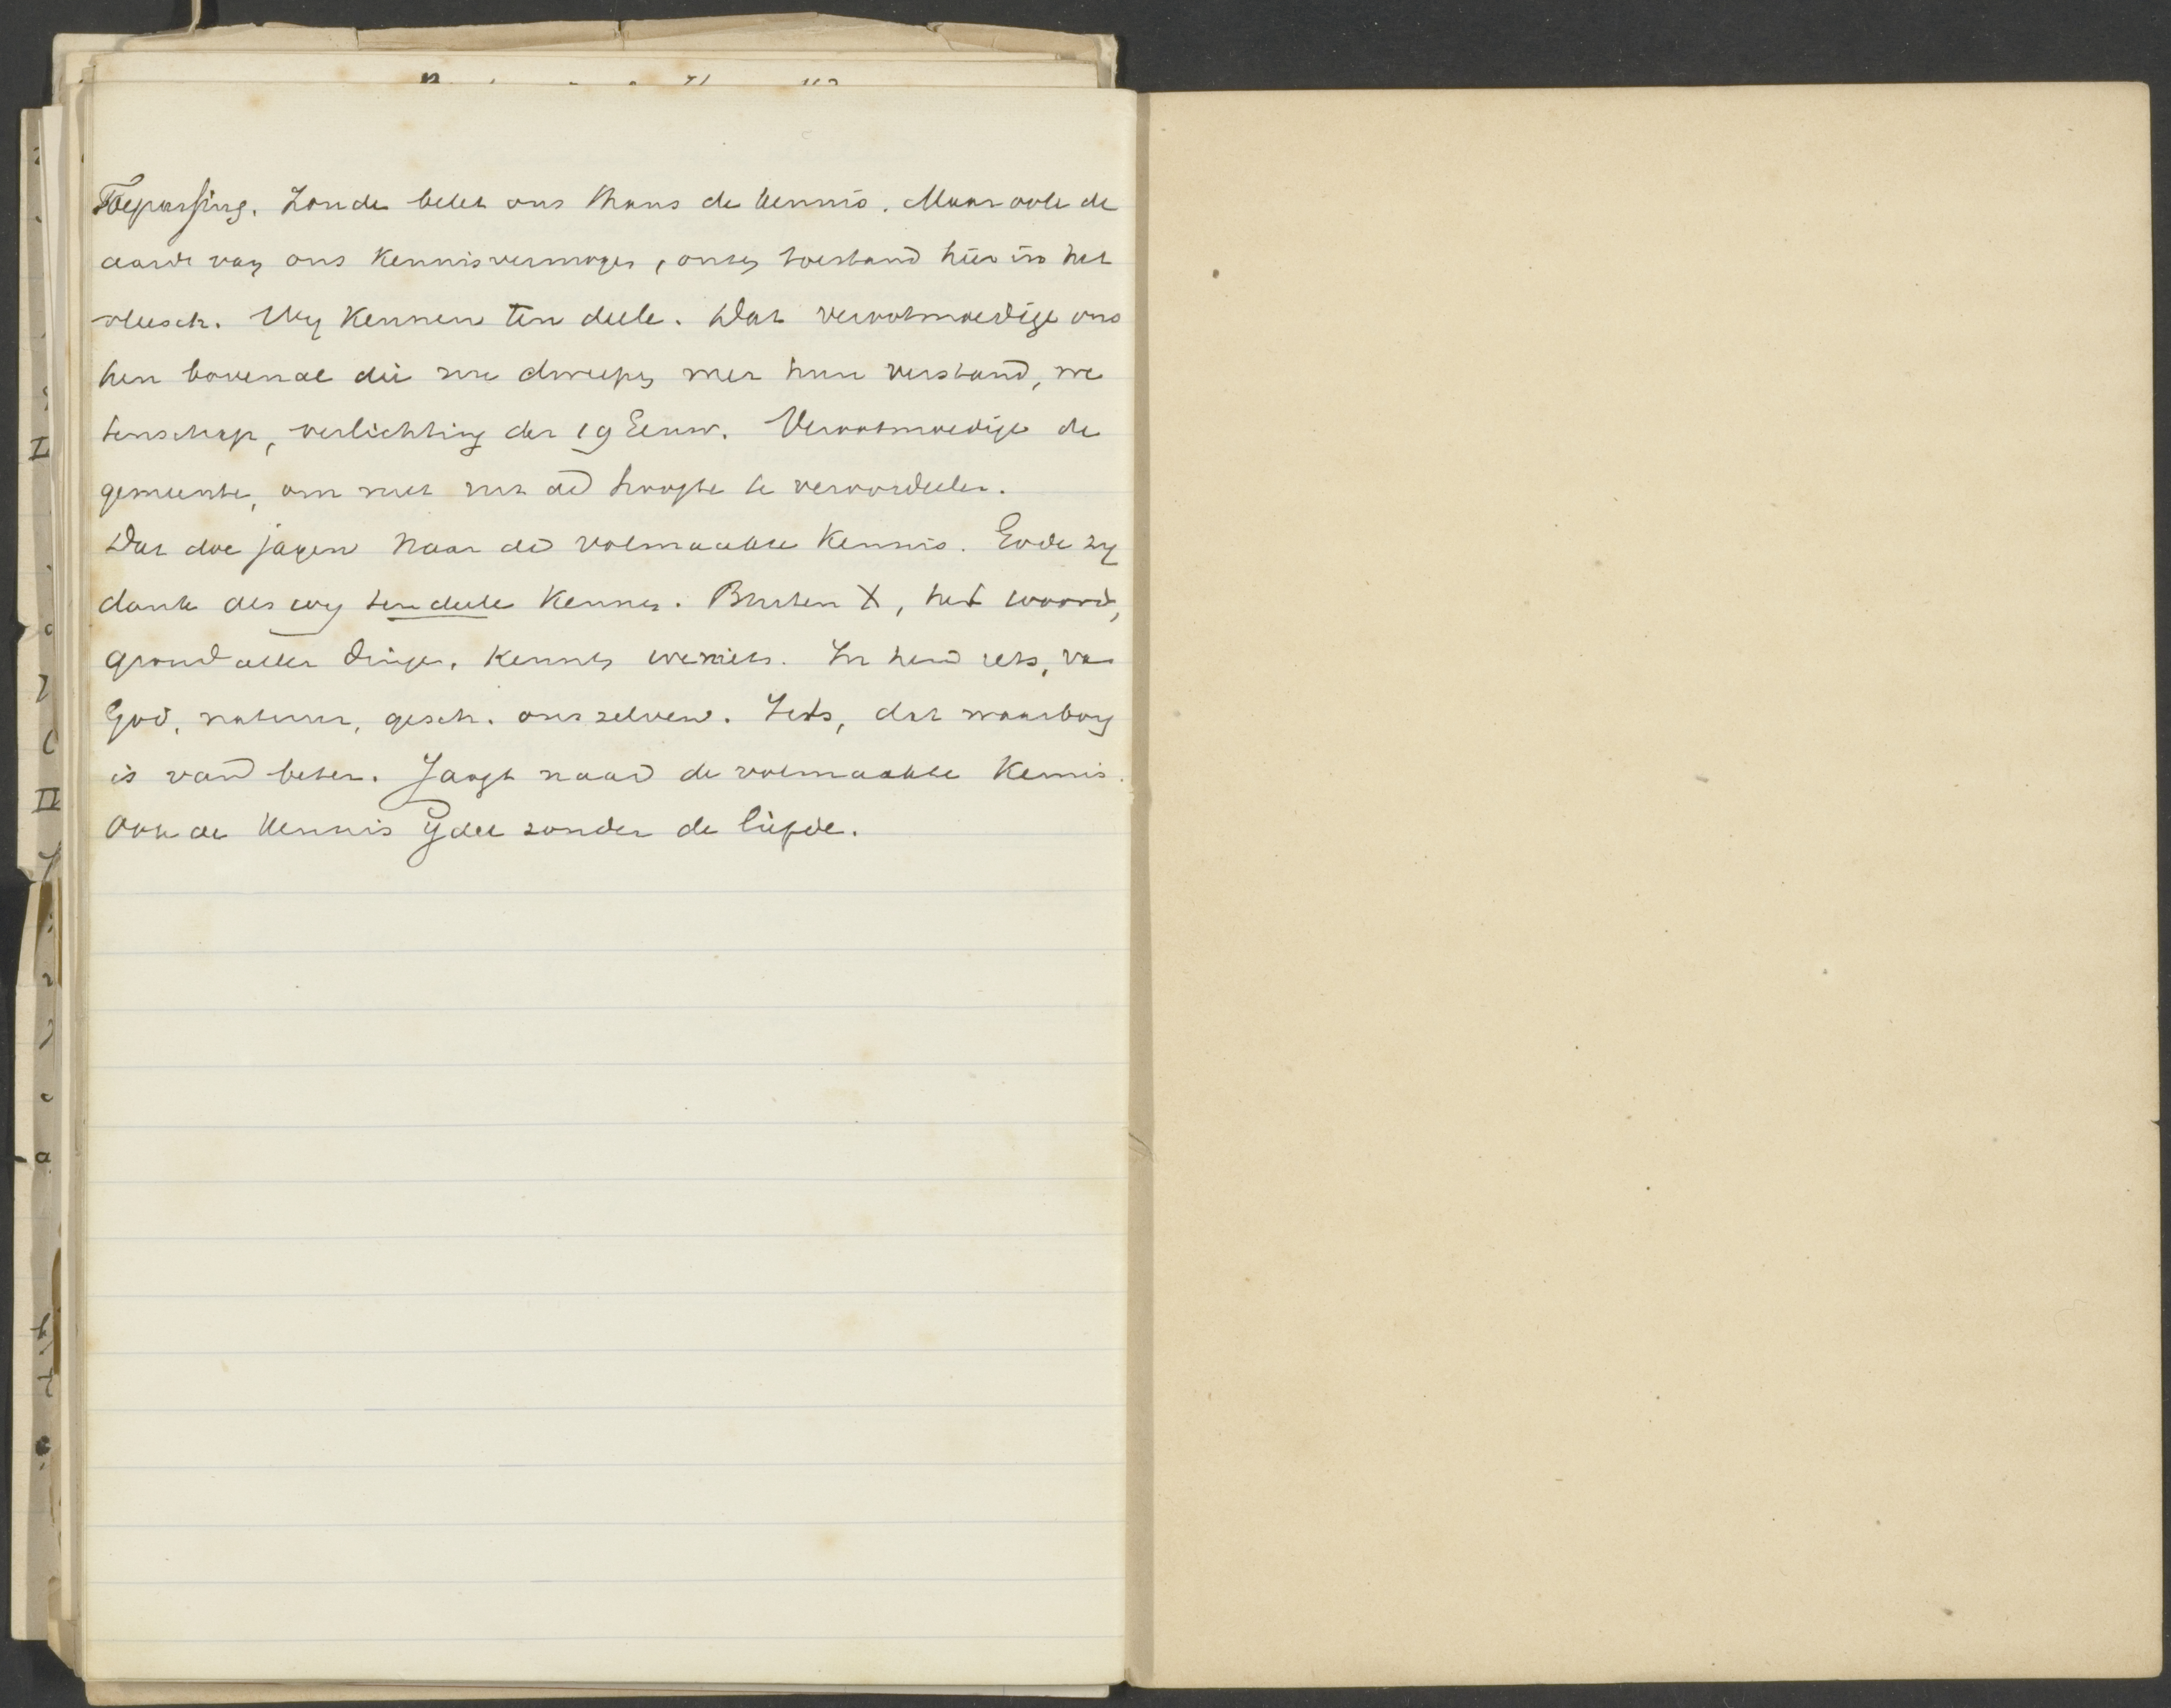 Toepassing. Zonde belet ons thans de kennis. Maar ook de
aard van ons kennisvermogen, onzen toestand hier in het
vleesch. Wy kennen ten deele. Dat verootmoedige ons
hen bovenal die zoo dweepen met hun verstand, we
tenschap, verlichting der 19 Eeuw. Verootmoedige de
gemeente, om niet uit de hoogte te veroordeelen.
Dat doe jagen naar de volmaakte kennis. Gode zy
dank als wy ten deele kennen. Buiten X, het woord,
grond aller dingen, kennen we niets. In hem iets, van
God, natuur, gesch. ons zelven. Iets, dat waarborg
is van beter. Jaagt naar de volmaakte kennis.
Ook de kennis ijdel zonder de liefde.